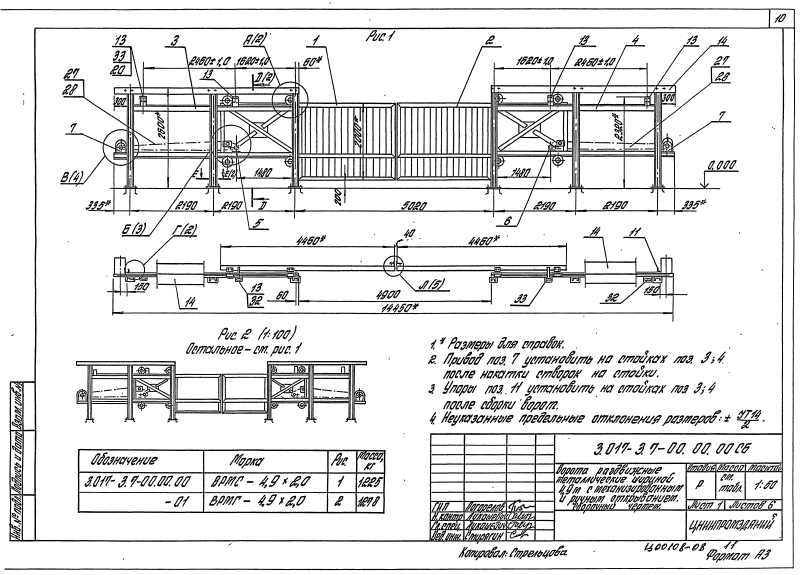 10
Рис. 1
13
33
20
3
2460±1,0
1620±1,0
А(2)
60*
1
2
1620±1,0
13
2460±1,0
4
13
14
27
28
13
D(2)
27
28
300
300
7
7
2600*
2000*
2320*
В(4)
0,000
1480
200
1480
335*
2190
2190
D
5020
2190
2190
335*
Б(3)
5
6
Г(2)
4460*
40
4460*
14
11
150
14
13
32
60
4900
Л(5)
33
32
150
14450*
Рис. 2 (1:100)
Остальное – см. рис. 1
1. * Размеры для справок.
2. Привод поз. 7 установить на стойках поз. 3; 4
после накатки створок на стойки.
3. Упоры поз. 11 установить на стойках поз 3; 4
после сборки ворот.
4. Неуказанные предельные отклонения размеров: ± IT14/2.
Обозначение Марка Рис. Масса, кг
3.017-3.7-00.00.00 ВРМС – 4,9 × 2,0 1 1225
-01 ВРМГ – 4,9 × 2,0 2 1278
3.017-3.7-00.00.00СБ
Ворота раздвижные
металлические шириной
4,9 м с механизированным
и ручным открыванием.
Сборочный чертеж.
Стадия Масса Масштаб
Р см. табл. 1:50
Лист 1 Листов 6
ЦНИИПРОМЗДАНИЙ
ГИП
Н.контр.
Гл.спец.
Вед.инж. Спирягин
Инв. № подл. Подпись и дата Взам. инв. №
Копировал: Стрельцова
Ц00108-08 11
Формат А3